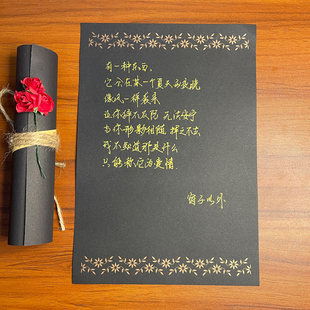 有一种东西，
它会在某一个夏天的夜晚
像风一样袭来
让你猝不及防 无法安宁
与你形影相随 挥之不去
我不知道那是什么
只能称它为爱情
窗子以外